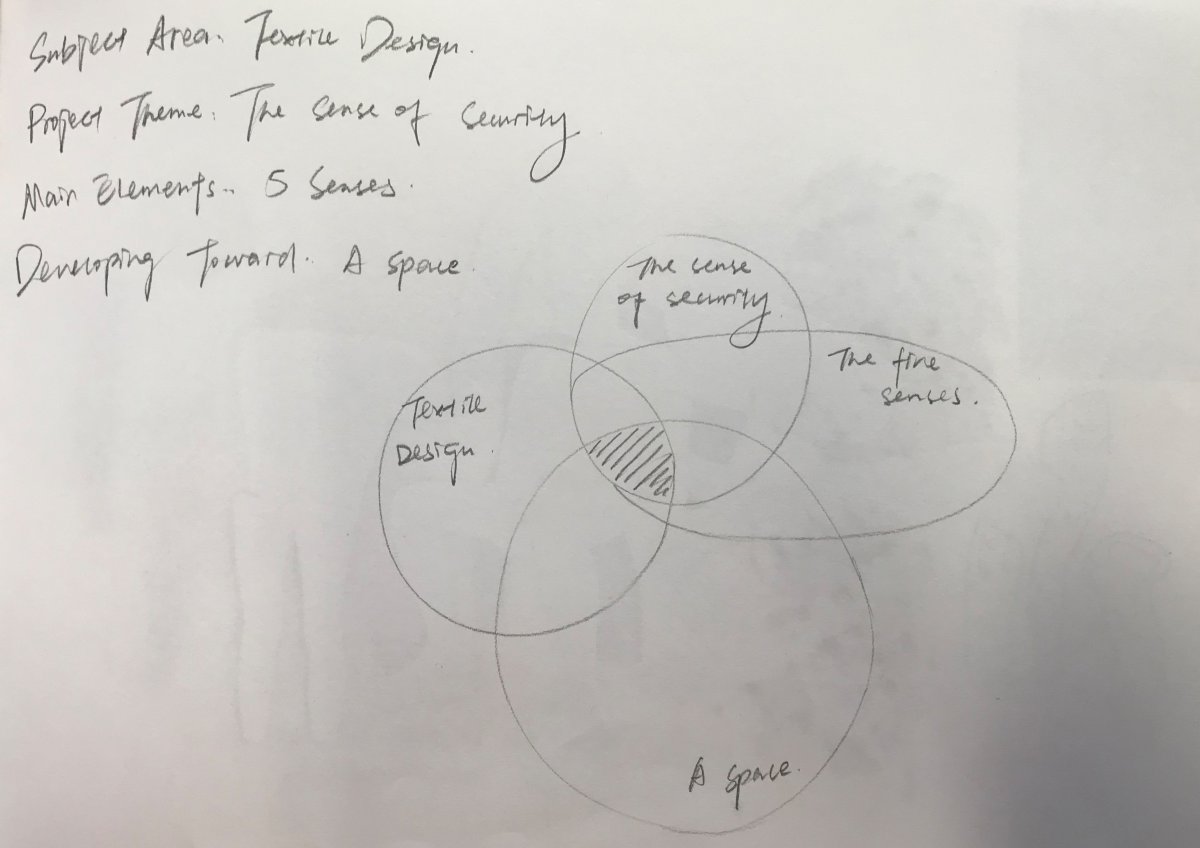 Subject Area. Textile Design.
Project Theme. The sense of security
Main Elements.. 5 Senses.
Developing Toward.. A space.
The sense
of security
The five
senses.
Textile
Design.
A space.